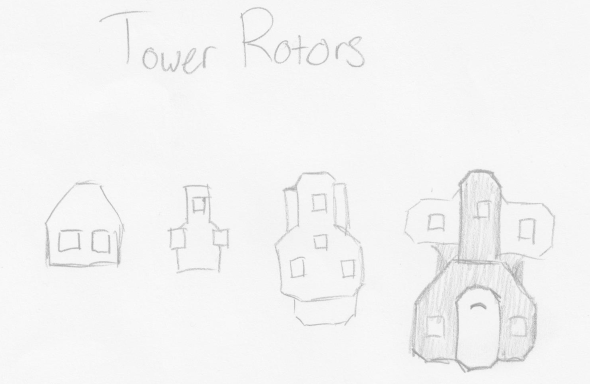 Tower Rotors